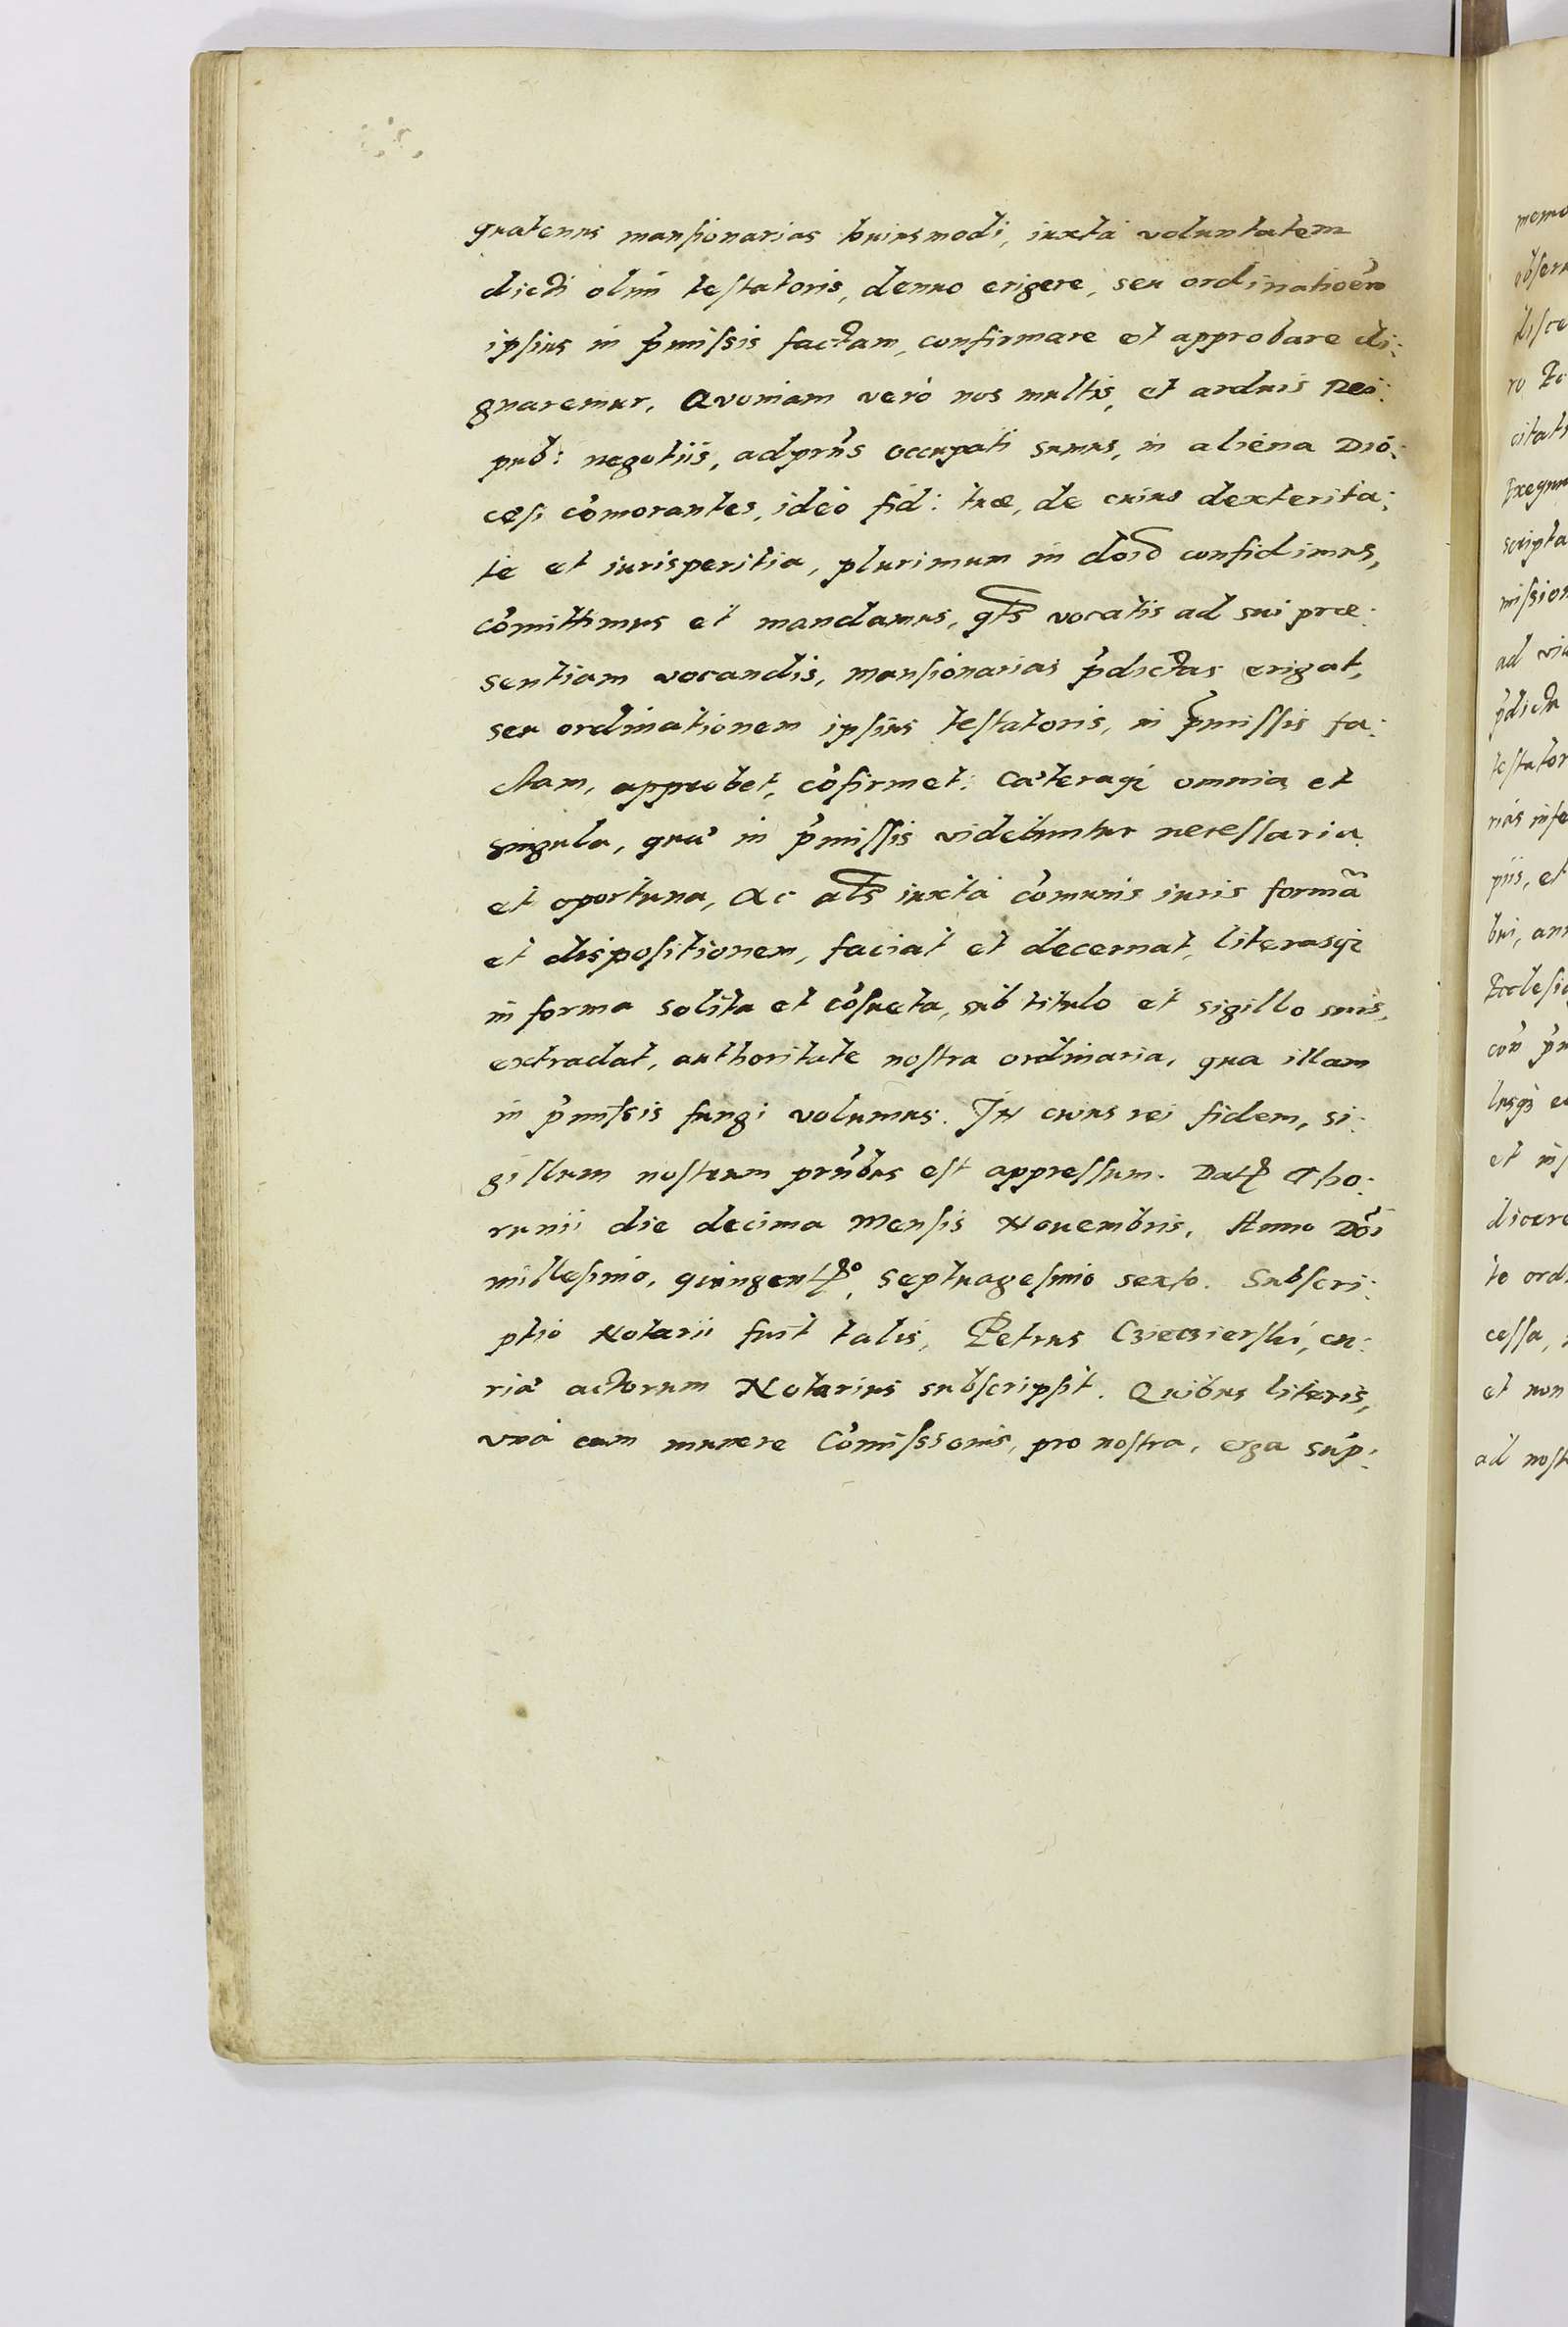 quatenus mansionarias huiusmodi, iuxta voluntatem
dicti olim testatoris, denuo erigere, seu ordinationē̄
ipsius in p̄missis factam, confirmare et approbare di:
gnaremur. Quoniam verò nos multis, et arduis Rei:
pub: negotiis, adprn̄s occupati sumus, in aliena Diȯ:
cesi com̄orantes, ideò fid: tuæ, de cuius dexterita:
te et iurisperitia, plurimum in do͞o confidimus,
com̄ittimus et mandamus, qt͞s vocatis ad sui præ:
sentiam vocandis, mansionarias p̄dictas erigat,
seu ordinationem ipsius testatoris, in p̄missis fa:
ctam, approbet, cōfirmet: Cæteraq; omnia et
singula, quæ in p̄missis videbuntur necessaria
et oportuna, Ac al͞s iuxta com̄unis iuris formā
et dispositionem, faciat et decernat, literasq;
in forma solita et cōsueta, sub titulo et sigillo suis,
extradat, authoritate nostra ordinaria, qua illam
in p̄missis fungi volumus. In cuius rei fidem, si:
gillum nostrum prn̄tibus est appressum. Datꝭ Tho:
runii die decima Mensis Nouembris, Anno Dn̄i
millesimo, quingentꝭo, Septuagesimo sexto. Subscri:
ptio Notarii fuit talis, Petrus Czieczierski, cu:
riæ actorum Notarius subscripsit. Quibus literis,
vnà cum munere Com̄issionis, pro nostra, erga sup:
memo
obseru
ro Ec
citati
Exequu
scripta
mission
ad
p̄dicta
testator
rias
piis, et
bui, ann
Ecclesia
et
dicere
to ord
cessa,
et non
ad nost